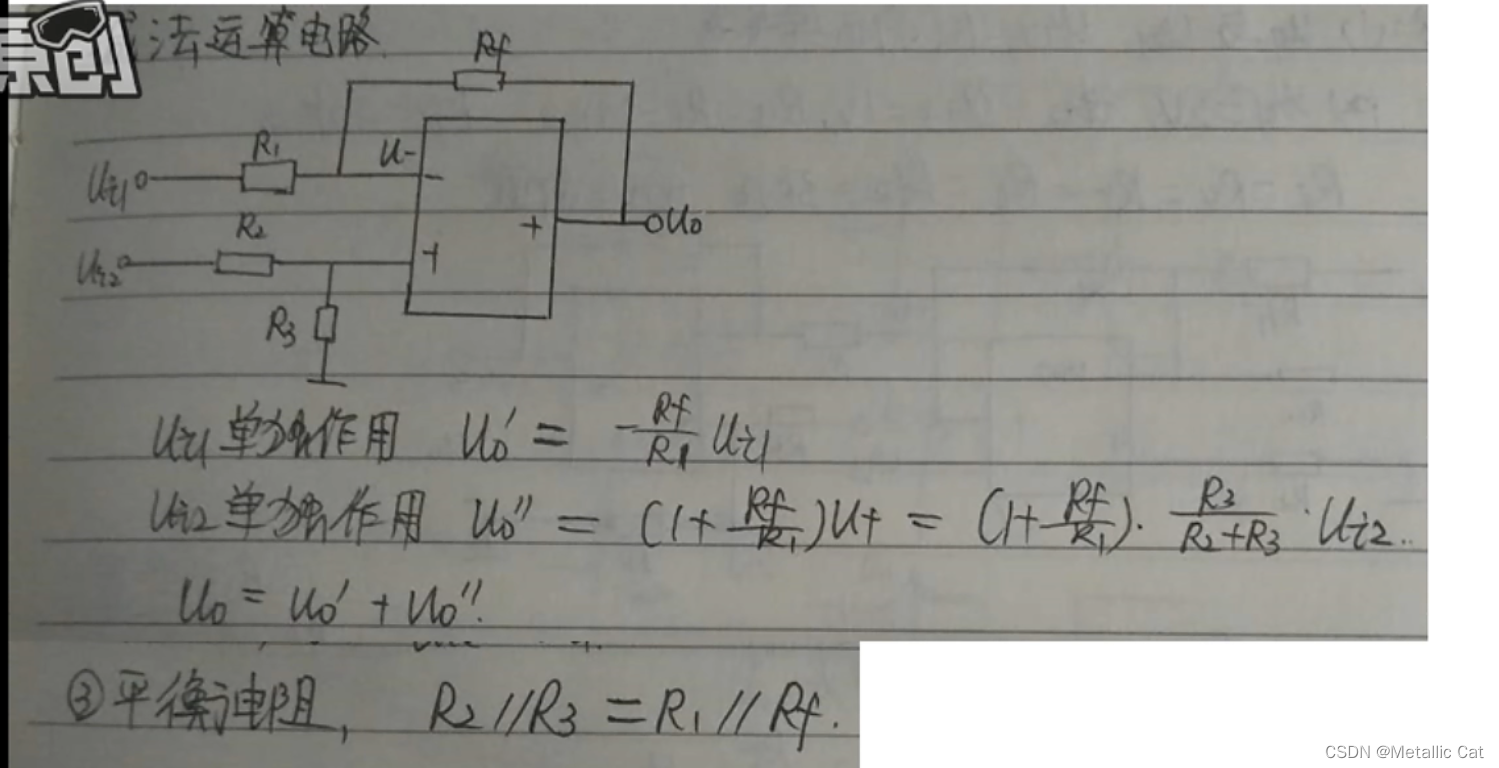 原创
法运算电路
Rf
R1
U-
Ui1
-
R2
+
Uo
Ui2
+
R3
Ui1单独作用 Uo' = -Rf/R1 Ui1
Ui2单独作用 Uo'' = (1+Rf/R1)U+ = (1+Rf/R1)·R3/(R2+R3)·Ui2..
Uo = Uo' + Uo''.
③平衡电阻, R2//R3 = R1//Rf.
CSDN @Metallic Cat